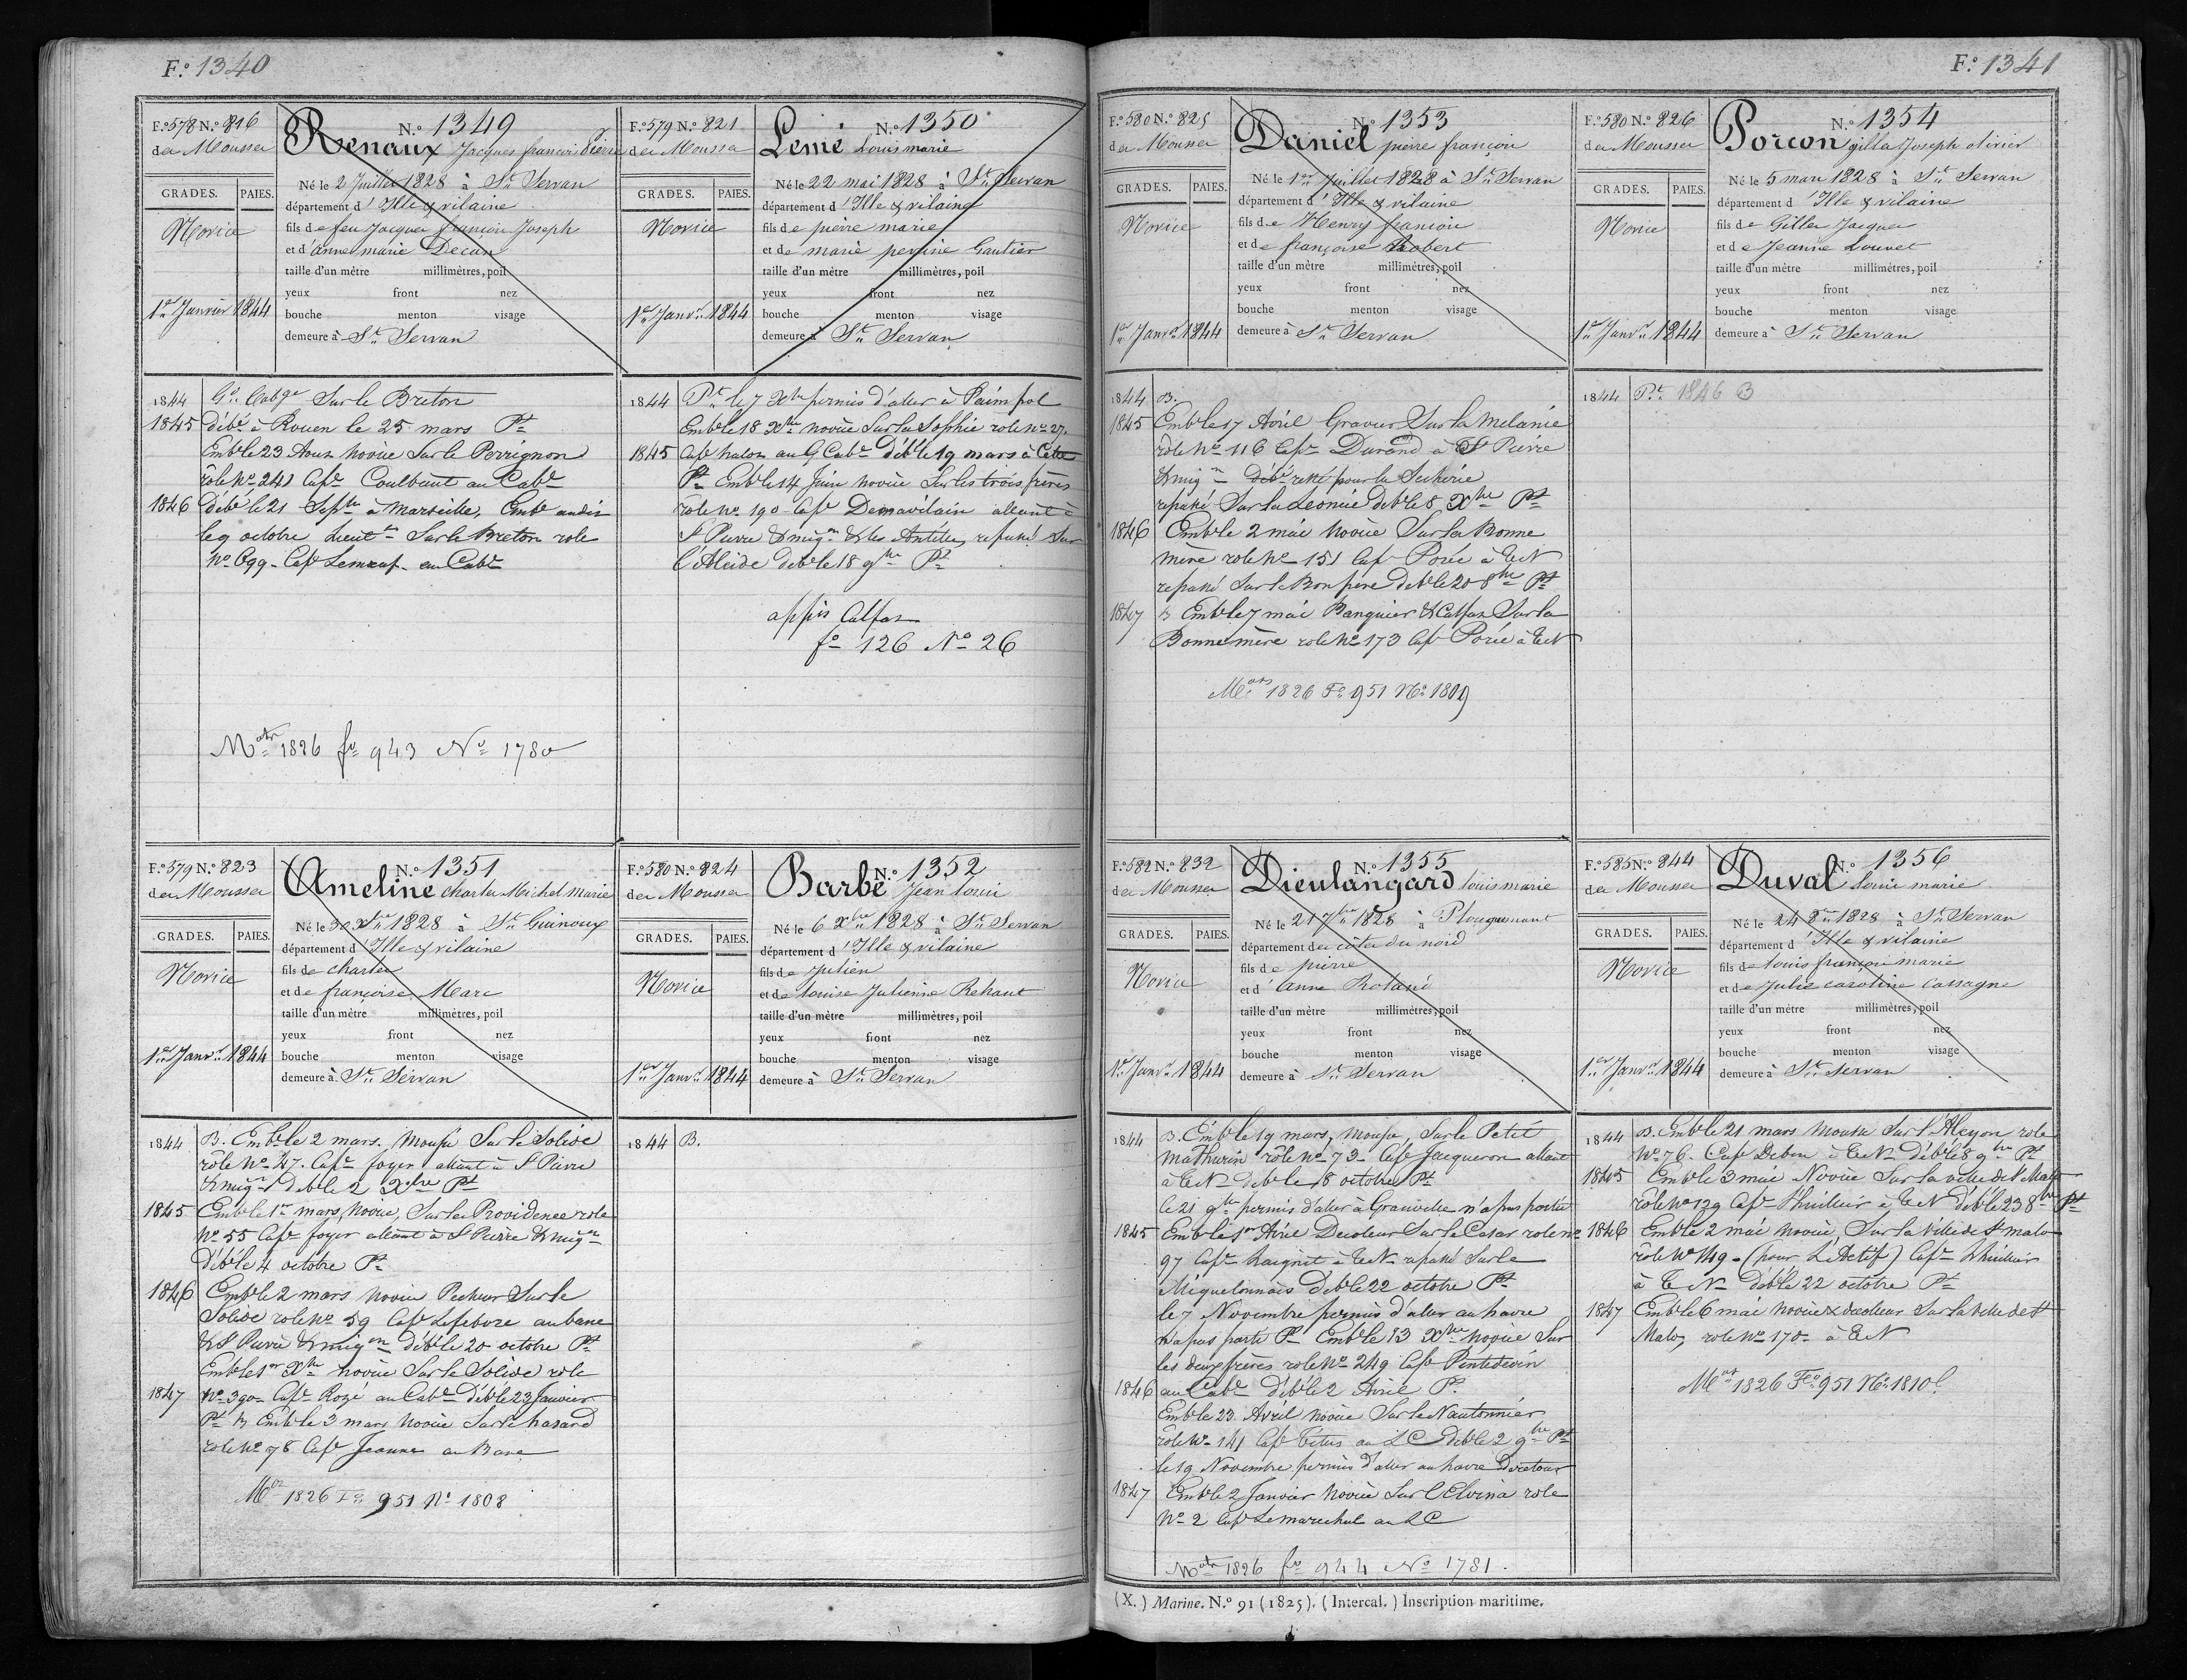 F.º 1340
F.º 578 N.º 816
des Mousses
N.º 1349
Renaux Jacques françois Pierre
GRADES. PAIES.
Novice
1er Janvier 1844
Né le 2 Juillet 1828 à St Servan
département d'Ille & vilaine
fils de feu Jacques françois Joseph
et d'anne marie Decan
taille d'un mètre millimètres, poil
yeux front nez
bouche menton visage
demeure à St Servan
1844 Gd Cabge Sur le Breton
1845 débé à Rouen le 25 mars Pt
Emblé 23 Aout novice Sur le Perrignon
rôle No 241 Cape Coulbaut au Cabe
1846 Débé le 21 Septbre à Marseille, Embé audit
le 9 octobre Lieut Sur le Breton role
No 699 - Cape Lemauf au Cabe
Mat 1826 fo 943 No 1780
F.º 579 N.º 821
des Mousses
N.º 1350
Lemé Louis marie
GRADES. PAIES.
Novice
1er Janvr 1844
Né le 22 mai 1828 à St Servan
département d'Ille & vilaine
fils de pierre marie
et de marie perrine Gautier
taille d'un mètre millimètres, poil
yeux front nez
bouche menton visage
demeure à St Servan
1844 Pt le 7 Xbre permis d'aller à Paimpol
Embé le 18 Xbre novice Sur la Sophie role No 27.
1845 Cape halon au G Cabe Déblé 19 mars à Cette
Pt Emblé 14 Juin novice Sur les trois frères
rôle No 190 - Cape Demavilain allant à
St Pierre & miqon & les Antilles, repassé Sur
l'Alcide deblé 18 9bre Pt
appis Calfat
fo 126 No 26
F.º 579 N.º 823
des Mousses
N.º 1351
Ameline Charles Michel Marie
GRADES. PAIES.
Novice
1er Janvr 1844
Né le 30 Xbre 1828 à St Guinoux
département d'Ille & vilaine
fils de charles
et de françoise Marc
taille d'un mètre millimètres, poil
yeux front nez
bouche menton visage
demeure à St Servan
1844 B. Emblé 2 mars. Mousse Sur le Solide
rôle No 47. Cape foyer allant à St Pierre
& miqn deblé 2 Xbre Pt
1845 Emblé 1er mars, novice, Sur la Providence role
No 55 Cape foyer allant à St Pierre & miqn
Déblé 4 octobre Pt
1846 Emblé 2 mars novice Pecheur Sur le
Solide role No 59 Cape Lefebvre au banc
& St Pierre & miqon déblé 20 octobre Pt
Emblé 1er Xbre novice Sur le Solide role
1847 No 390 - Cape Rozé au Cabe Déblé 23 Janvier
Pt B Emblé 3 mars Novice Sur le hasard
role No 78 Cape Jeanne au Banc
Mat 1826 Fo 951 No 1808
F.º 580 N.º 824
des Mousses
N.º 1352
Barbé Jean louis
GRADES. PAIES.
Novice
1er Janvr 1844
Né le 6 Xbre 1828 à St Servan
département d'Ille & vilaine
fils de Julien
et de louise Julienne Rehaut
taille d'un mètre millimètres, poil
yeux front nez
bouche menton visage
demeure à St Servan
1844 B.
F.º 1341
F.º 580 N.º 825
des Mousses
N.º 1353
Daniel pierre françois
GRADES. PAIES.
Novice
1er Janvr 1844
Né le 1er Juillet 1828 à St Servan
département d'Ille & vilaine
fils de Henry françois
et de françoise Robert
taille d'un mètre millimètres, poil
yeux front nez
bouche menton visage
demeure à St Servan
1844 B.
1845 Emblé 17 Avril Gravier Sur la Melanie
role No 116 Cape Durand à St Pierre
& miqn débé resté pour la Secherie
repassé Sur la Leonie deblé 8 Xbre Pt
1846 Emblé 2 mai novice Sur la Bonne
mère role No 151 Cap Porée à TN
repassé Sur le Bon père deblé 20 8bre Pt
1847 B Emblé 7 mai Banquier & Calfat Sur la
Bonne mère role No 173 Cap Porée à TN
Mat 1826 Fo 951 No 1809
F.º 580 N.º 826
des Mousses
N.º 1354
Porcon gilles Joseph olivier
GRADES. PAIES.
Novice
1er Janvr 1844
Né le 5 mars 1828 à St Servan
département d'Ille & vilaine
fils de Gilles Jacques
et de Jeanne Louvet
taille d'un mètre millimètres, poil
yeux front nez
bouche menton visage
demeure à St Servan
1844 Pt 1846 B
F.º 582 N.º 832
des Mousses
N.º 1355
Dieulangard louis marie
GRADES. PAIES.
Novice
1er Janvr 1844
Né le 21 7bre 1828 à Plouguenant
département des côtes du nord
fils de pierre
et d'anne Roland
taille d'un mètre millimètres, poil
yeux front nez
bouche menton visage
demeure à St Servan
1844 B. Emblé 19 mars, mousse, Sur le Petit
Mathurin rôle No 73 - Cape Jacqueron allant
à TN deblé 18 octobre Pt
le 21 9bre permis d'aller à Granville n'a pas partie
1845 Emblé 1er Avril Decoleur Sur le Cesar role No
97 Cape haignit à TN repassé Sur le
Miquelonnais Déblé 22 octobre Pt
le 7 Novembre permis d'aller au havre
n'a pas parti Pt Emblé 13 Xbre novice Sur
les deux frères role No 249 Cape Pentedevin
1846 au Cabe Déblé 2 Avril Pt
Emblé 23 Avril Novice Sur le Nautonnier
role No 141 Cape Titus au LC Déblé 2 9bre Pt
le 19 Novembre permis d'aller au havre De retour
1847 Emblé 2 Janvier Novice Sur l'Elvina role
No 2 Cape Lemarechal au LC
Mat 1826 fo 944 No 1781.
F.º 585 N.º 844
des Mousses
N.º 1356
Duval Louis marie
GRADES. PAIES.
Novice
1er Janvr 1844
Né le 24 8bre 1828 à St Servan
département d'Ille & vilaine
fils de louis françois marie
et de Julie caroline Cassagne
taille d'un mètre millimètres, poil
yeux front nez
bouche menton visage
demeure à St Servan
1844 B. Emblé 21 mars Mousse Sur l'Alcyon role
No 76. Cape Debon à TN Déblé 8 9bre Pt
1845 Emblé 3 mai Novice Sur la ville de St Malo
rôle No 129 Cape Lhuilier à TN deblé 23 8bre Pt
1846 Emblé 2 mai novice, Sur la Ville de St malo
rôle No 149 - (pour L'Actif) Cape Lhuilier
à TN Déblé 22 octobre Pt
1847 Emblé 6 mai novice & decoleur Sur la ville de St
Malo, role No 170 - à TN
Mat 1826 Fo 951 No 1810
(X.) Marine. N.º 91 (1825). (Intercal.) Inscription maritime.